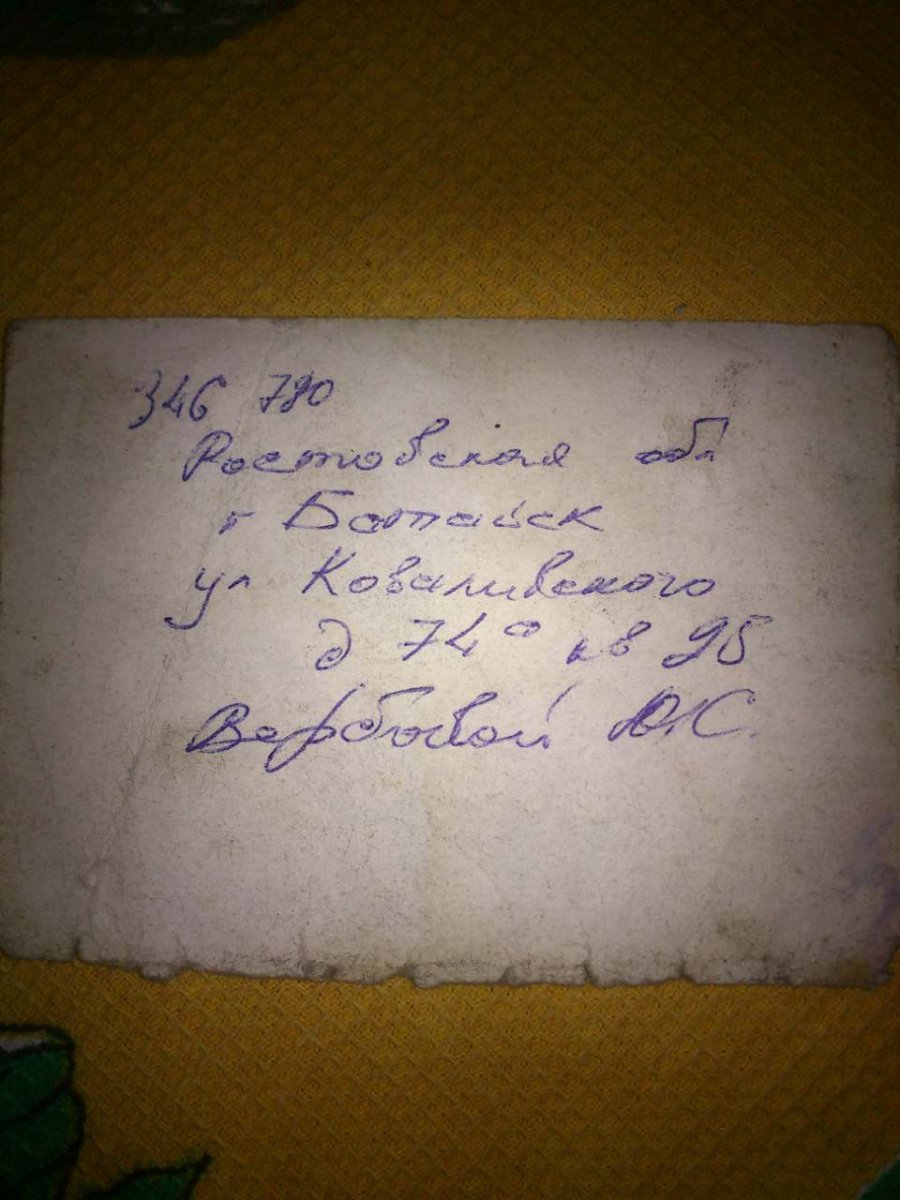 346 780
Ростовская обл
г Батайск
ул Коваливского
д 74а кв 95
Вербовой Ю.С.